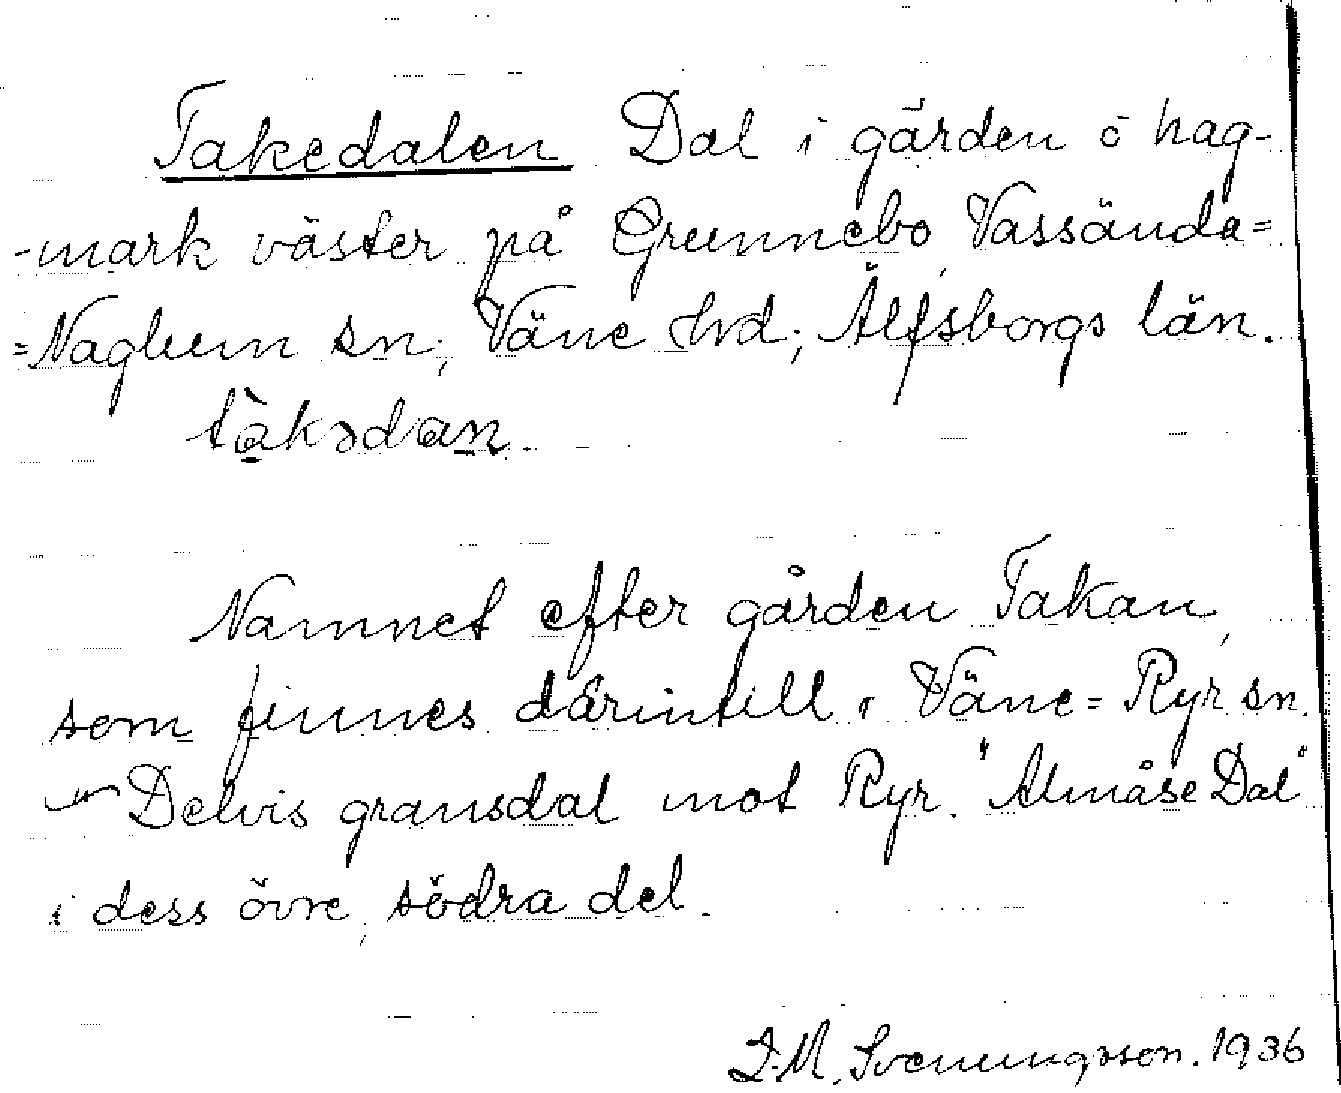 Takedalen Dal i gärden o hag-
-mark väster på Grunnebo, Vassända=
=Naglum sn; Väne hrd; Älfsborgs län.
tàkədan.
Namnet efter gården Takan,
som finnes därintill i Väne=Ryr sn.
Delvis gränsdal mot Ryr. "Almåse Dal"
i dess övre, södra del.
J.M. Svenungsson. 1936